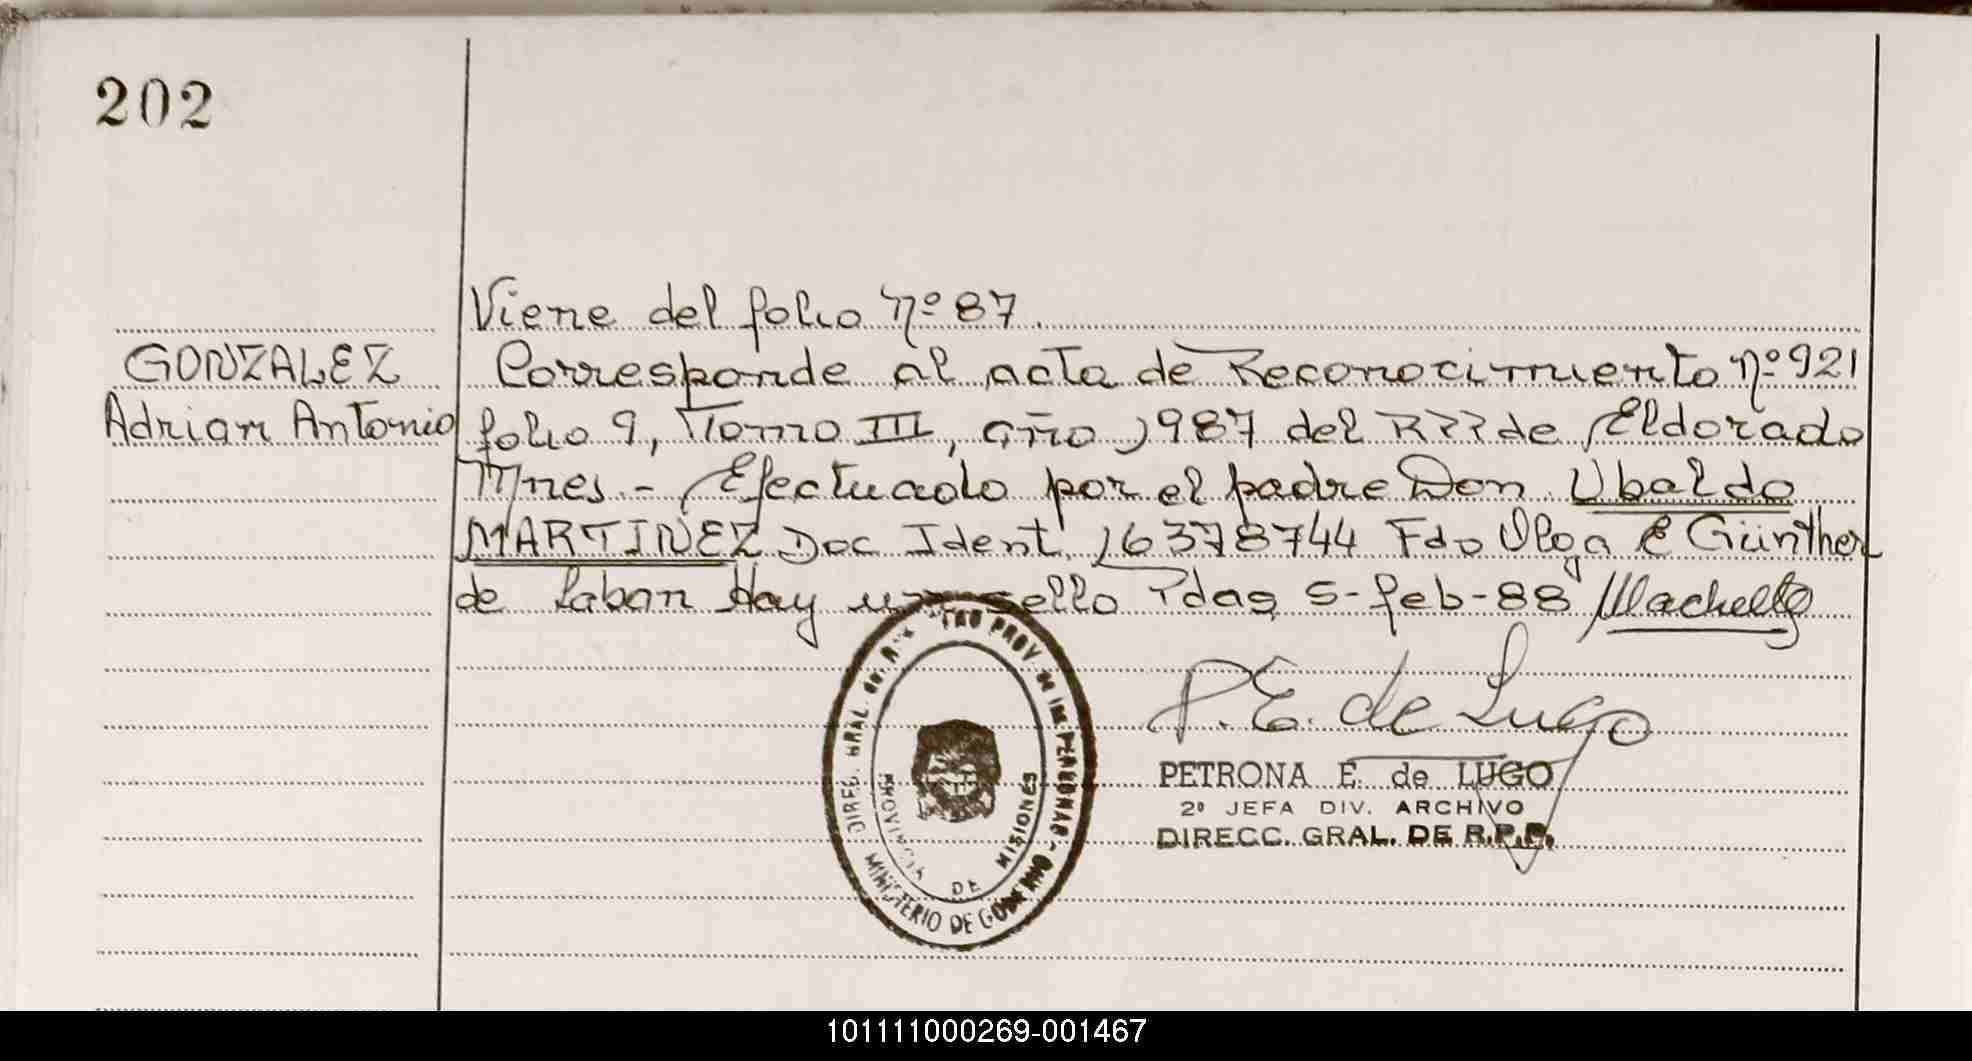 202
Viene del folio Nº 87.
GONZALEZ
Adrian Antonio
Corresponde al acta de Reconocimiento Nº 921
folio 9, Tomo III, año 1987 del RPP de Eldorado
Mnes.- Efectuado por el padre Don Ubaldo
MARTINEZ Doc Ident 16378744 Fdo Olga E Günther
de Laban Hay un sello Pdas 5-feb-88
P. E. de Lugo
PETRONA E. de LUGO
2º JEFA DIV. ARCHIVO
DIRECC. GRAL. DE R.P.P.
PROV. de las PERSONAS -
MINISTERIO DE GOBIERNO
PROVINCIA DE MISIONES
101111000269-001467